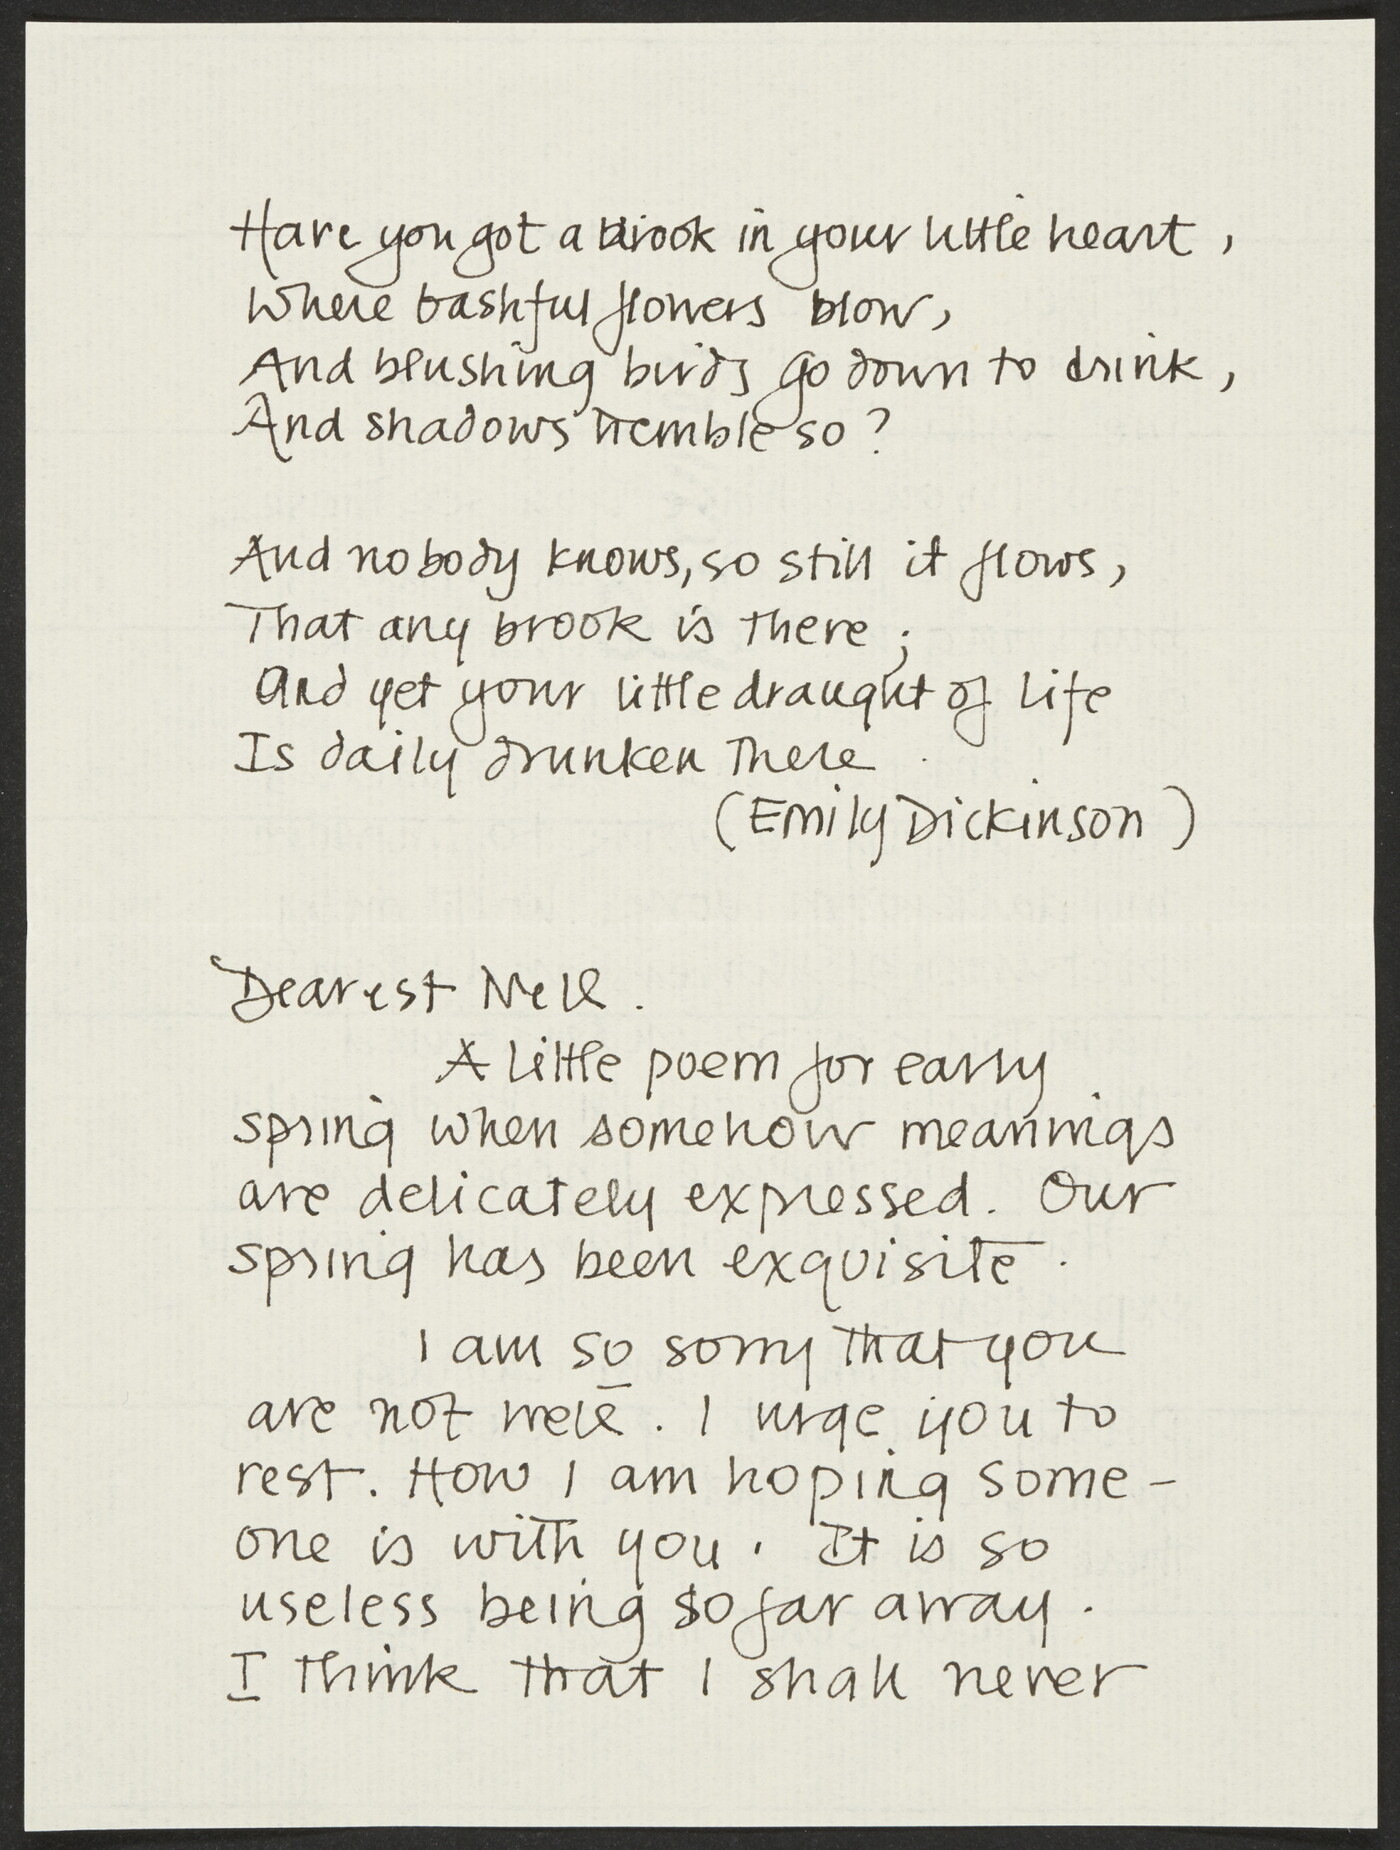 Have you got a brook in your little heart,
Where bashful flowers blow,
And blushing birds go down to drink,
And shadows tremble so?
And nobody knows, so still it flows,
That any brook is there;
And yet your little draught of life
Is daily drunken there.
(Emily Dickinson)
Dearest Nell.
A little poem for early
spring when somehow meanings
are delicately expressed. Our
spring has been exquisite.
I am so sorry that you
are not well. I urge you to
rest. How I am hoping some-
one is with you. It is so
useless being so far away.
I think that I shall never